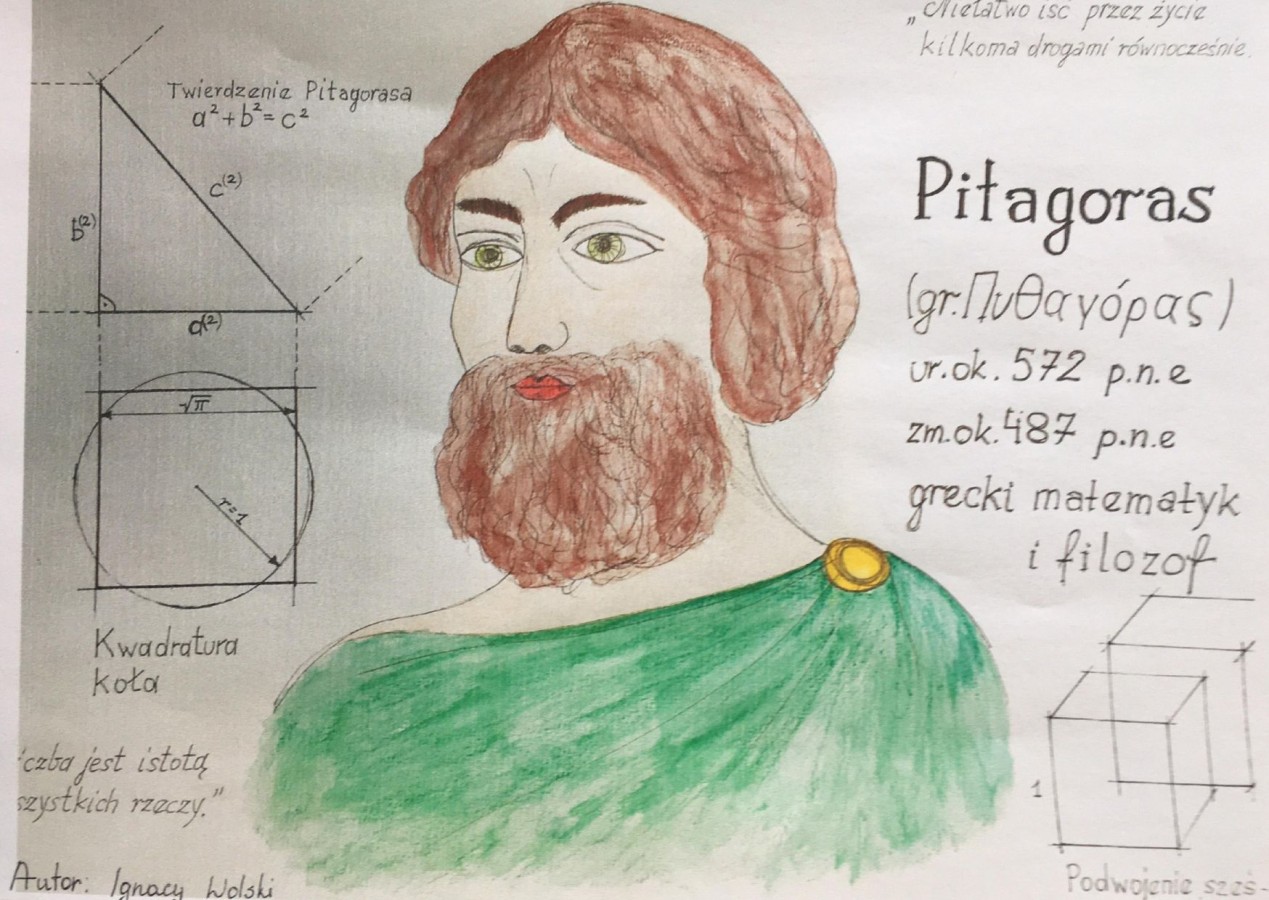 „Niełatwo iść przez życie
kilkoma drogami równocześnie.
Twierdzenie Pitagorasa
a²+b²=c²
c⁽²⁾
b⁽²⁾
a⁽²⁾
Pitagoras
(gr.Πυθαγόρας)
ur.ok. 572 p.n.e
zm.ok.487 p.n.e
grecki matematyk
i filozof
√π
r=1
Kwadratura
koła
czba jest istotą
szystkich rzeczy.”
1
Autor: Ignacy Wolski
Podwojenie sześ-